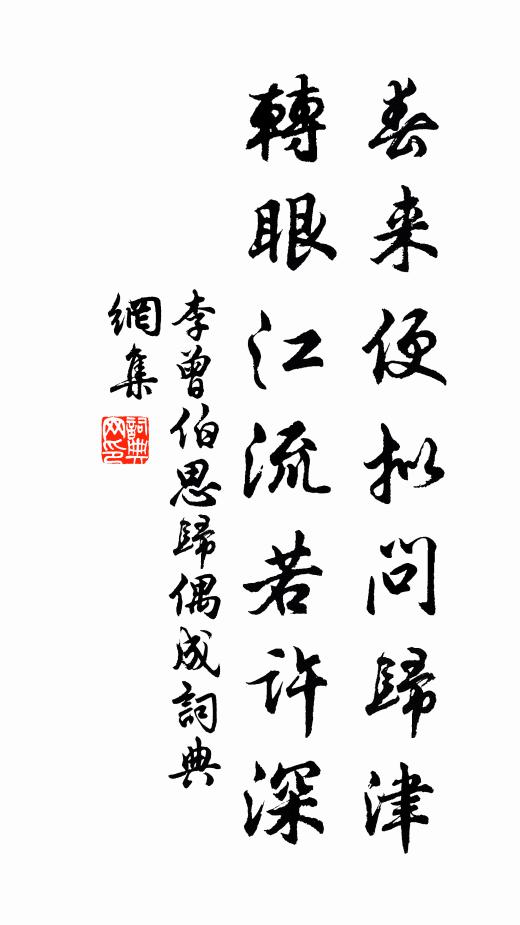 春来便拟問歸津
轉眼江流若許深
李曾伯思歸偶成詞典
網集
詞典网印